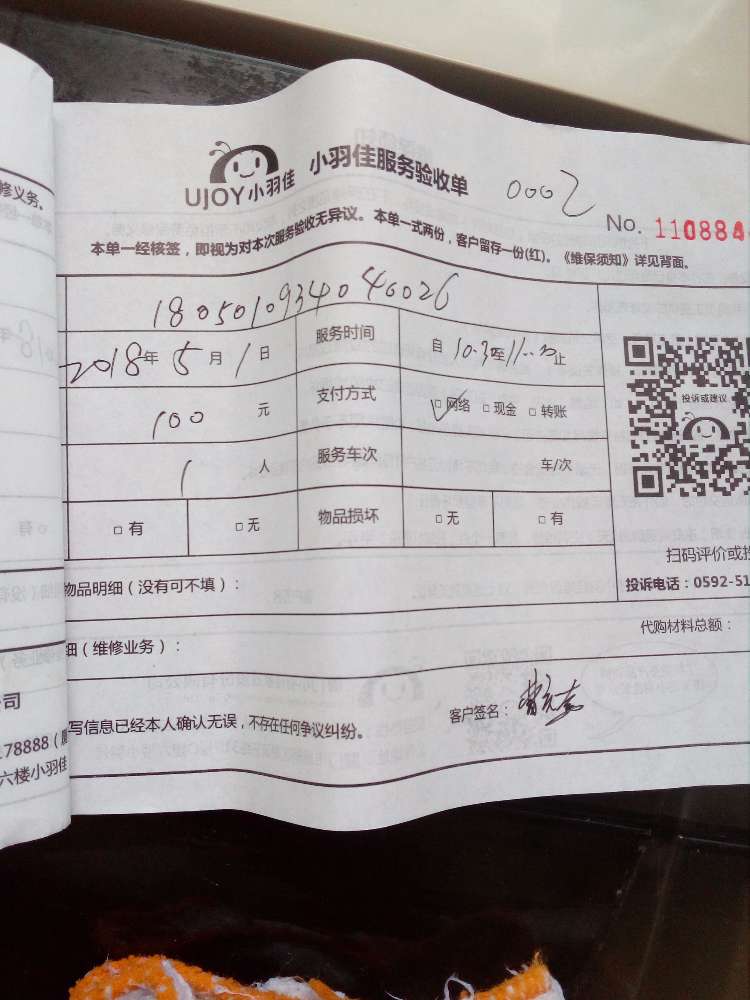 修义务。
UJOY小羽佳 小羽佳服务验收单 0002
No. 110884
本单一经核签，即视为对本次服务验收无异议。本单一式两份，客户留存一份(红)。《维保须知》详见背面。
1805010934040026
2018年5月1日 服务时间 自 10:3 至 止
100 元 支付方式 ☑网络 □现金 □转账
投诉或建议
1 人 服务车次 车/次
□有 □无 物品损坏 □无 □有
扫码评价或投
物品明细（没有可不填）：
投诉电话：0592-51
细（维修业务）：
代购材料总额：
写信息已经本人确认无误，不存在任何争议纠纷。 客户签名：
公司
178888
六楼小羽佳